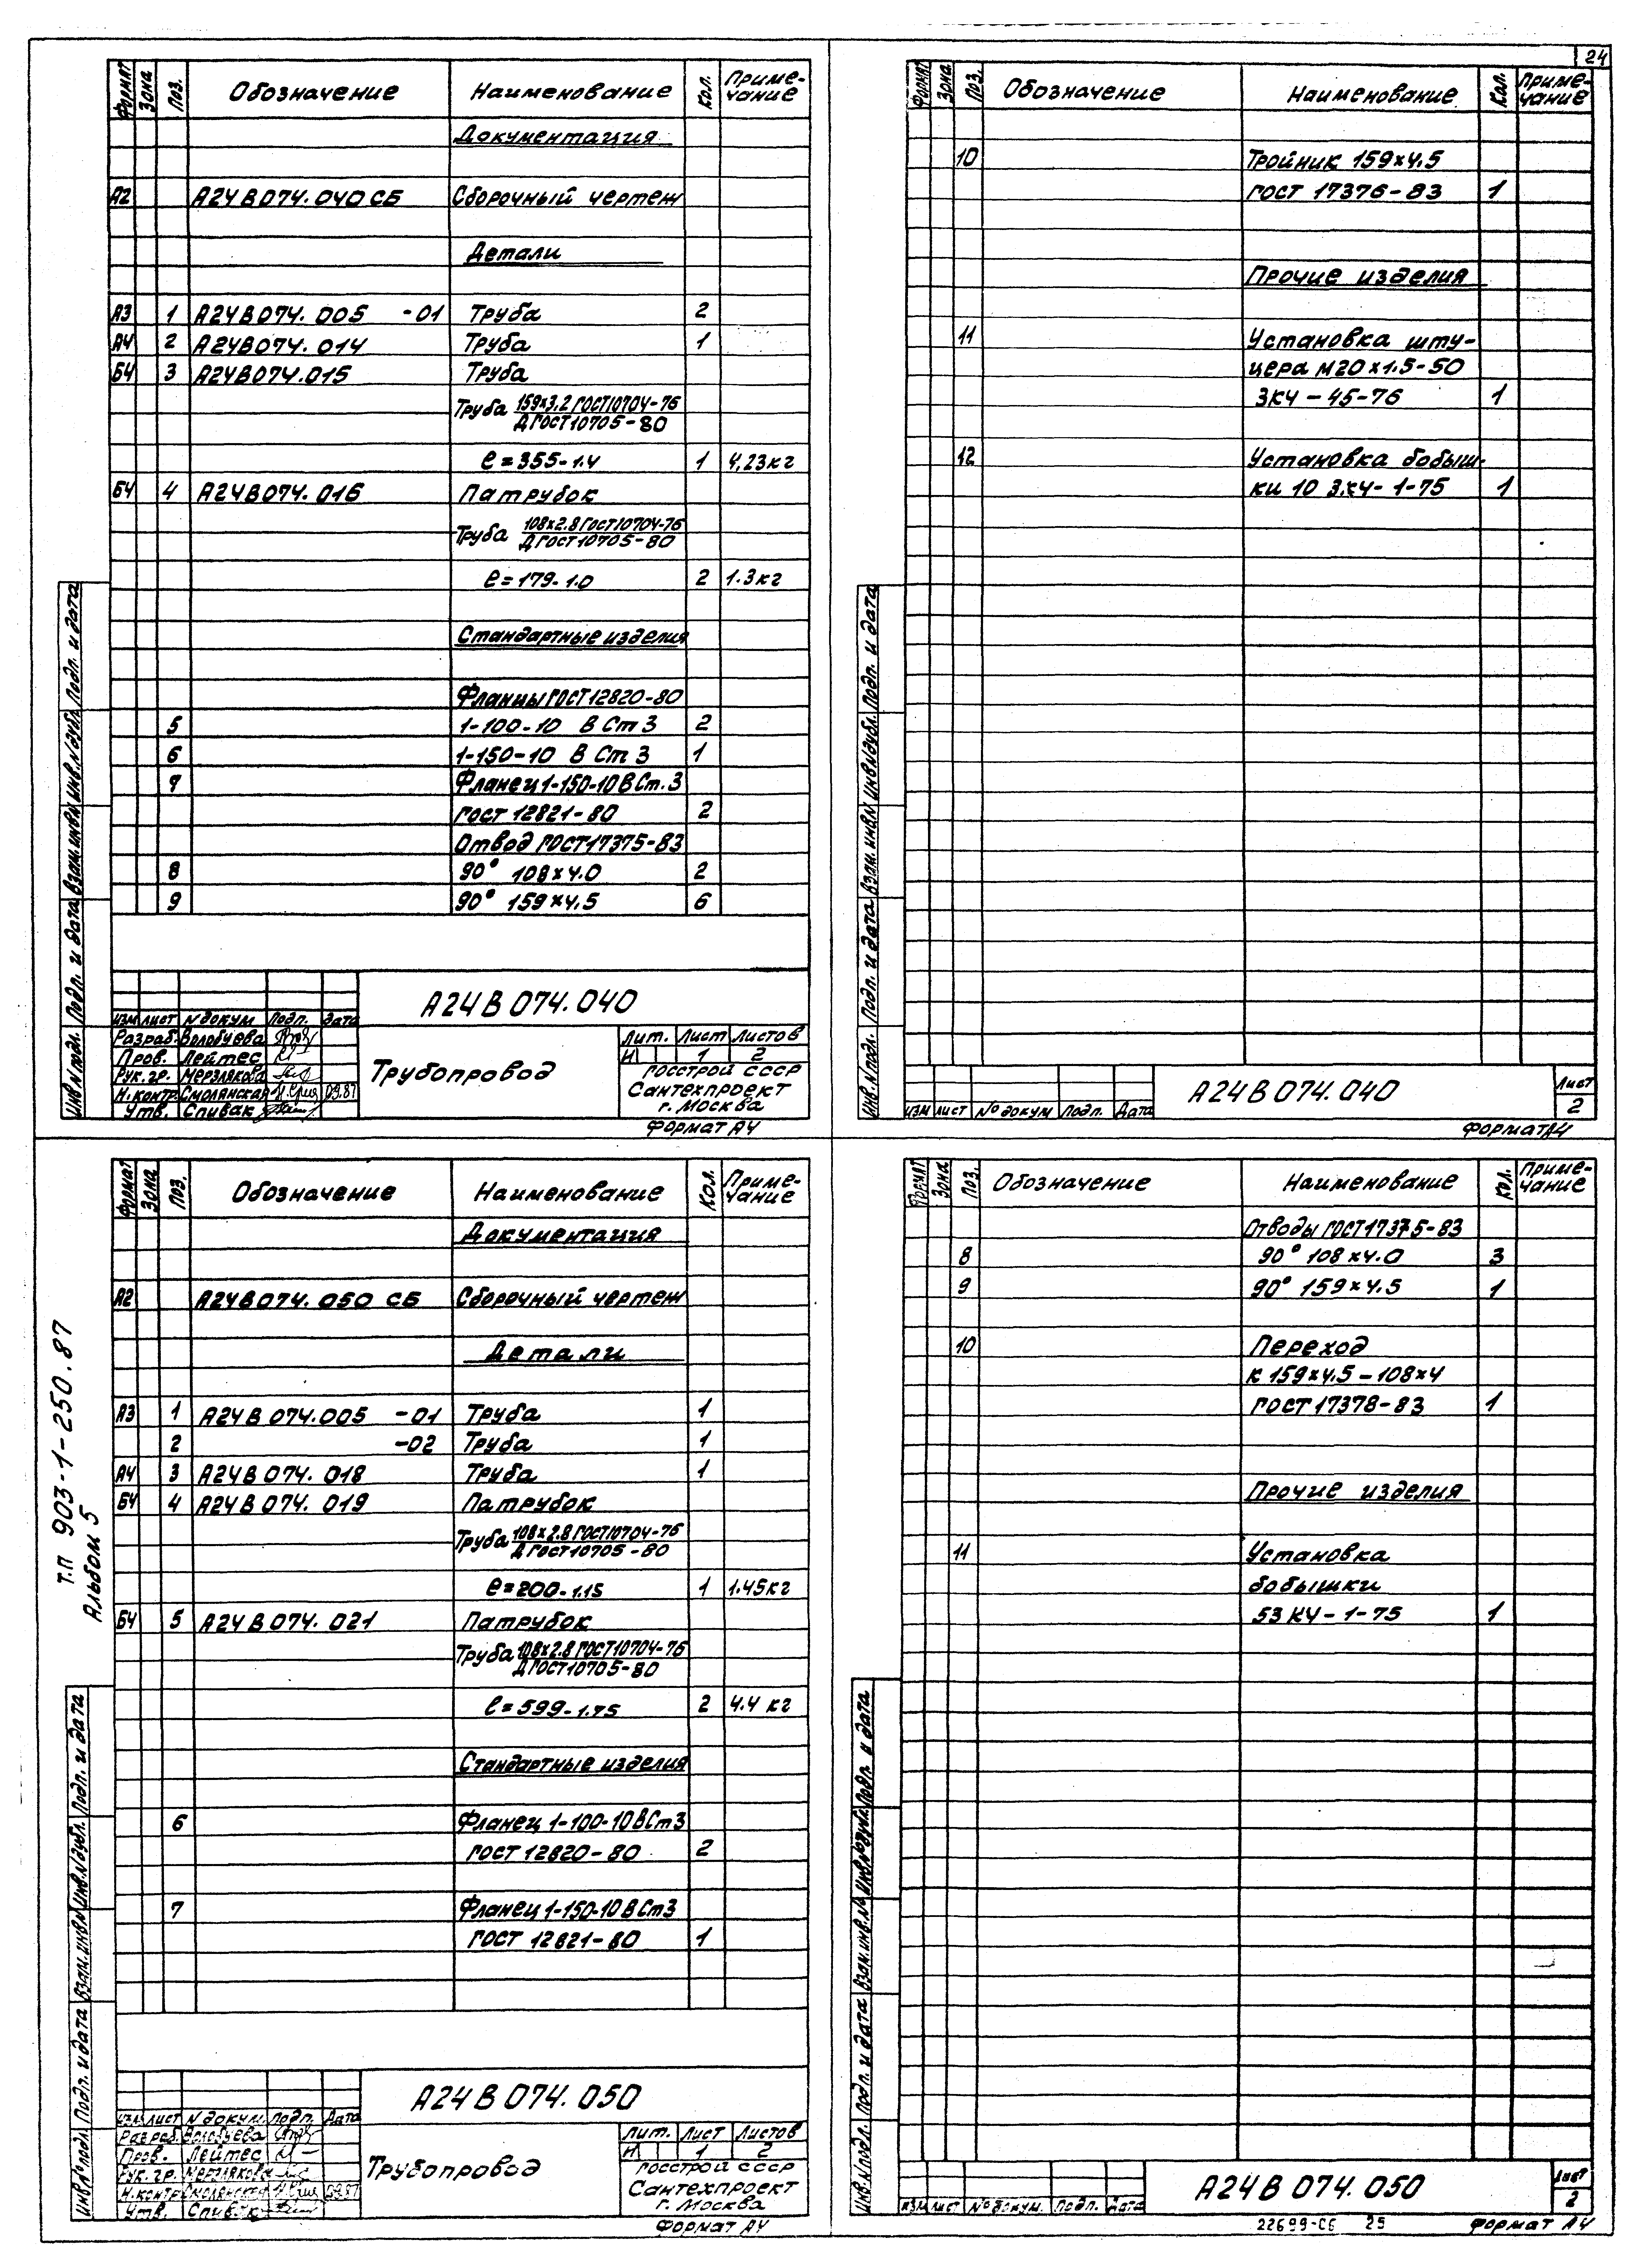 24
Формат Зона Поз. Обозначение Наименование Кол. Приме-
чание
Документация
А2 А24В074.040 СБ Сборочный чертеж
Детали
А3 1 А24В074.005 -01 Труба 2
А4 2 А24В074.014 Труба 1
Б4 3 А24В074.015 Труба
Труба 159х3.2 ГОСТ10704-76
Д ГОСТ10705-80
ℓ=355-1.4 1 4,23кг
Б4 4 А24В074.016 Патрубок
Труба 108х2.8 ГОСТ10704-76
Д ГОСТ10705-80
ℓ=179-1.0 2 1.3кг
Стандартные изделия
Фланцы ГОСТ12820-80
5 1-100-10 В Ст 3 2
6 1-150-10 В Ст 3 1
7 Фланец 1-150-10 В Ст.3
ГОСТ 12821-80 2
Отвод ГОСТ17375-83
8 90° 108х4.0 2
9 90° 159х4.5 6
А24В074.040
Изм Лист № докум Подп. Дата
Разраб. Волобуева
Пров. Лейтес
Рук. гр. Мерзлякова
Н.контр. Смолянская 09.87
Утв. Спивак
Трубопровод
Лит. Лист Листов
И 1 2
Госстрой СССР
Сантехпроект
г. Москва
Формат А4
Инв.№подл. Подп. и дата Взам.инв.№ Инв.№дубл. Подп. и дата
Формат Зона Поз. Обозначение Наименование Кол. Приме-
чание
10 Тройник 159х4.5
ГОСТ 17376-83 1
Прочие изделия
11 Установка шту-
цера М20х1.5-50
ЗК4-45-76 1
12 Установка бобыш-
ки 10 ЗК4-1-75 1
А24В074.040
Лист
2
Изм Лист № докум Подп. Дата
Формат А4
Инв.№подл. Подп. и дата Взам.инв.№ Инв.№дубл. Подп. и дата
Т.П 903-1-250.87
Альбом 5
Формат Зона Поз. Обозначение Наименование Кол. Приме-
чание
Документация
А2 А24В074.050 СБ Сборочный чертеж
Детали
А3 1 А24В074.005 -01 Труба 1
2 -02 Труба 1
А4 3 А24В074.018 Труба 1
Б4 4 А24В074.019 Патрубок
Труба 108х2.8 ГОСТ10704-76
Д ГОСТ10705-80
ℓ=200-1.15 1 1.45кг
Б4 5 А24В074.021 Патрубок
Труба 108х2.8 ГОСТ10704-76
Д ГОСТ10705-80
ℓ=599-1.75 2 4.4 кг
Стандартные изделия
6 Фланец 1-100-10 В Ст3
ГОСТ 12820-80 2
7 Фланец 1-150-10 В Ст3
ГОСТ 12821-80 1
А24В074.050
Изм Лист № докум. Подп. Дата
Разраб. Волобуева
Пров. Лейтес
Рук. гр. Мерзлякова
Н.контр. Смолянская 09.87
Утв. Спивак
Трубопровод
Лит. Лист Листов
И 1 2
Госстрой СССР
Сантехпроект
г. Москва
Формат А4
Инв.№подл. Подп. и дата Взам.инв.№ Инв.№дубл. Подп. и дата
Формат Зона Поз. Обозначение Наименование Кол. Приме-
чание
Отводы ГОСТ17375-83
8 90° 108х4.0 3
9 90° 159х4.5 1
10 Переход
К 159х4.5-108х4
ГОСТ 17378-83 1
Прочие изделия
11 Установка
бобышки
53 К4-1-75 1
А24В074.050
Лист
2
Изм Лист № докум. Подп. Дата
22699-06 25 Формат А4
Инв.№подл. Подп. и дата Взам.инв.№ Инв.№дубл. Подп. и дата